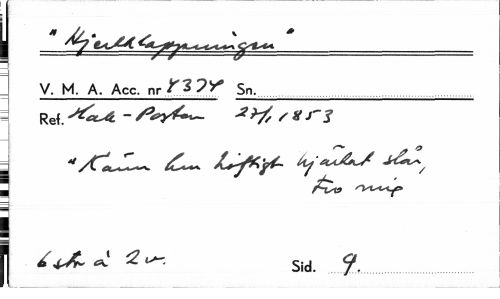 "Hjertklappningen"
V. M. A. Acc. nr 4374 Sn.
Ref. Hall-Posten 27/1 1853
"Känn hur häftigt hjärtat slår,
tro mig
6 str à 2 v. Sid. 4.